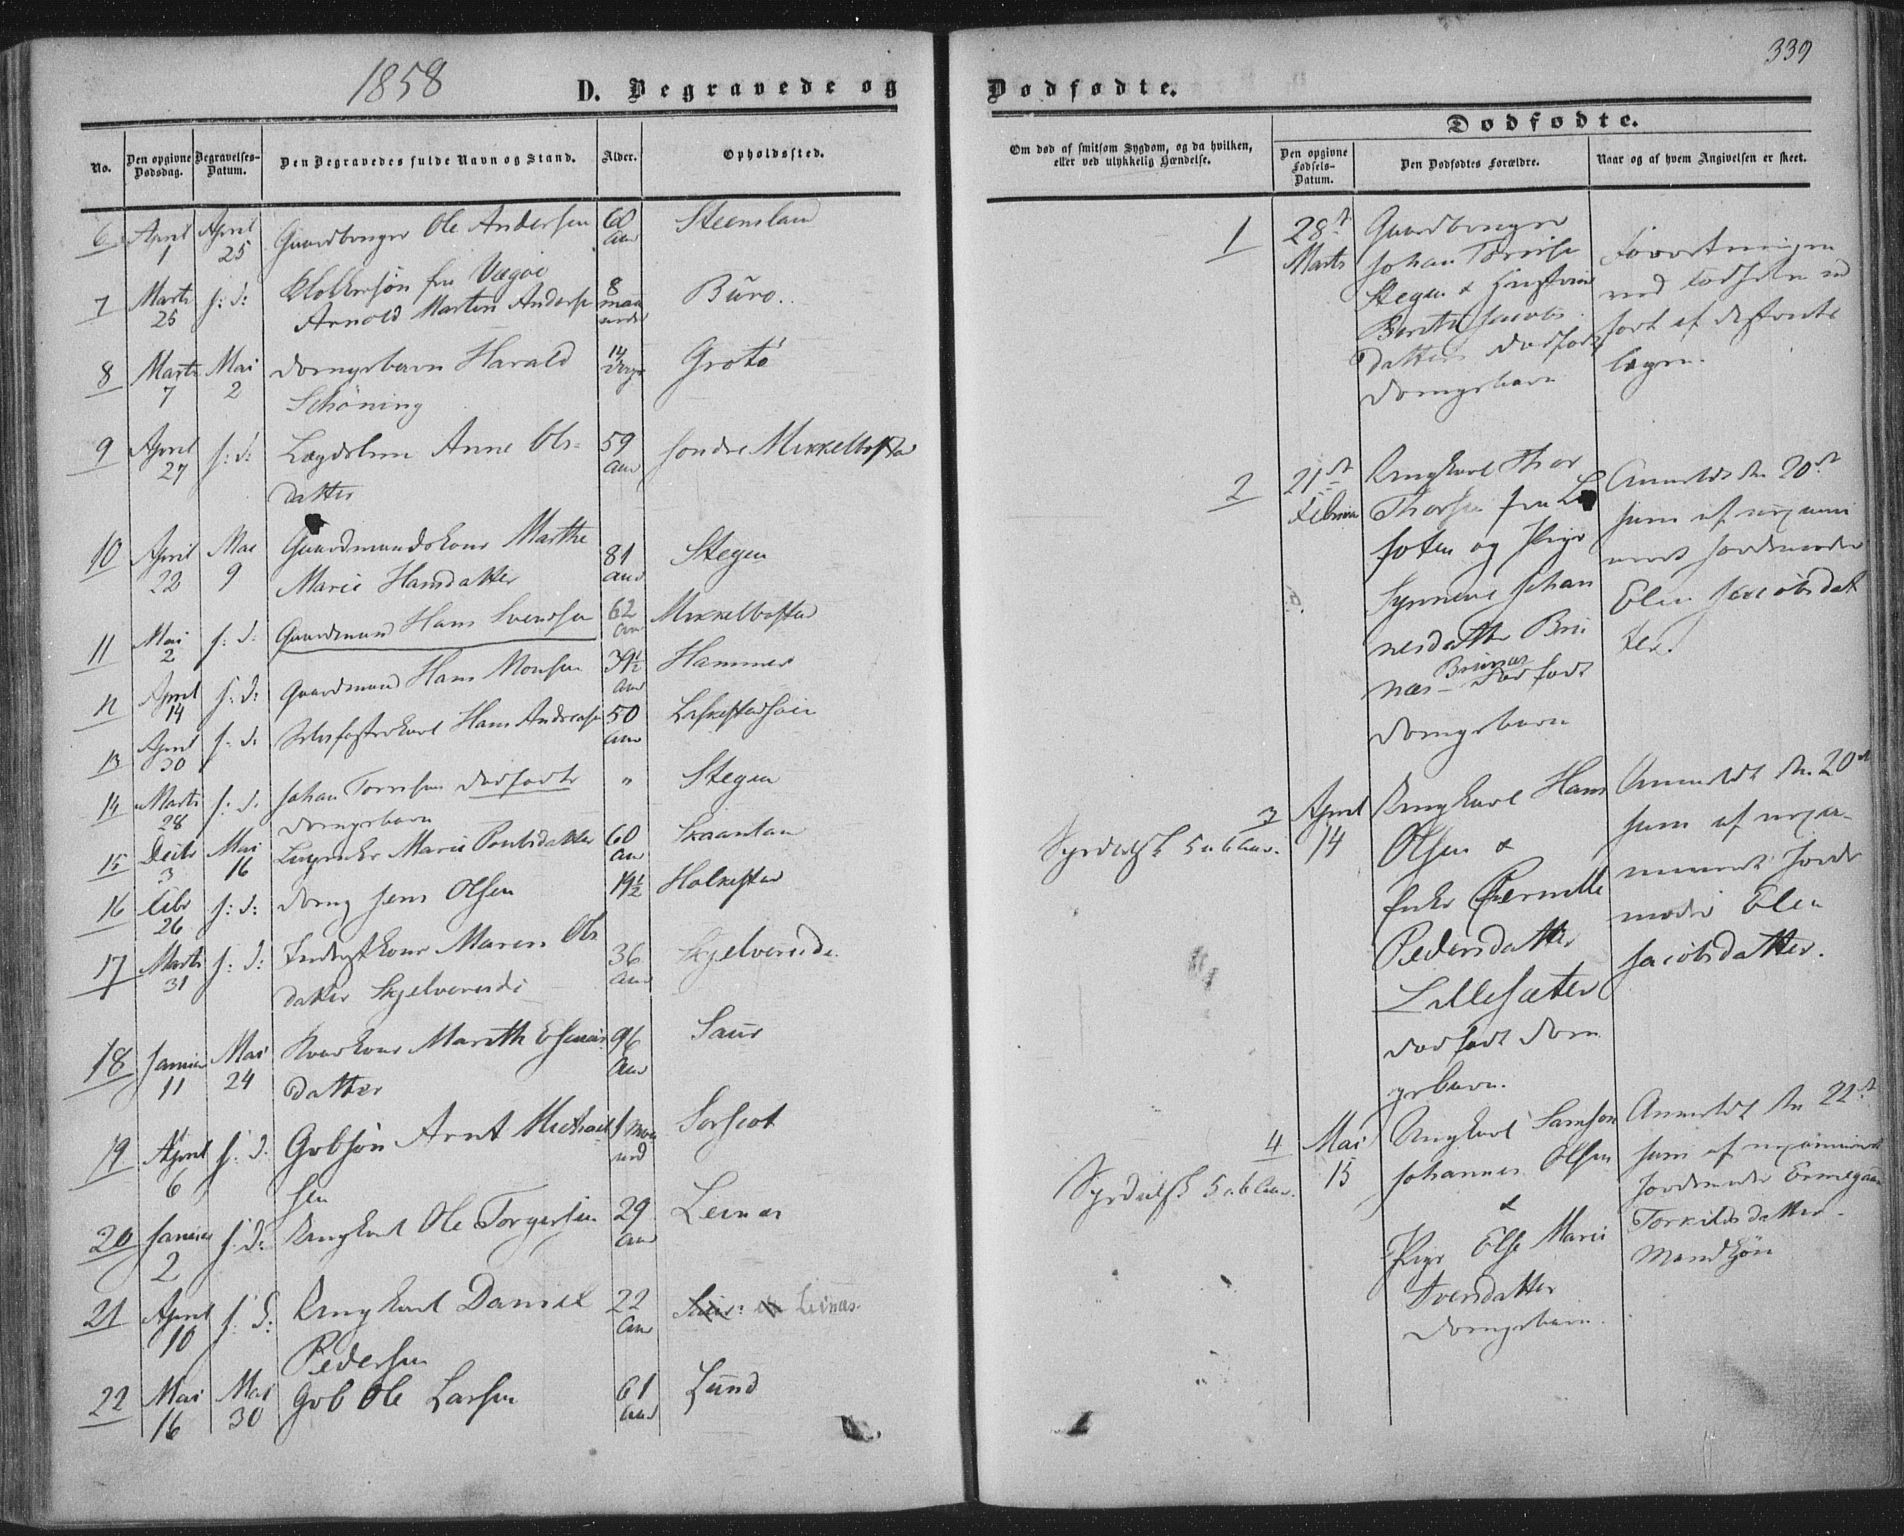 1858
D. Begravede og
No.
Den opgivne Dødsdag.
Begravelses-Datum.
Den Begravedes fulde Navn og Stand.
Alder.
Opholdssted.
6 April 1 April 25 Gaardbruger Ole Andersen 60 Aar Steensland
7 Marts 25 s: d: fra Vægøe
Arnold Martin Anders 8 maaneder Buro..
8 Marts 7 Mai 2 Drengebarn Harald 14 Dage Grotö
Schöning
9 April 27 s: d: Lægdslem Anne Ols- 59 Aar søndre Mikkelbostad
datter
10 April 22 Mai 9 Gaardmandskone Marthe 81 Aar Stegen
Marie Hansdatter
11 Mai 2 s: d: Gaardmand Hans Svendsen 62 Aar Mikkelbostad
12 April 14 s: d: Gaardmand Hans Monsen 39½ Aar Hammer
13 April 30 s: d. Hans Andreas 50 Aar
14 Marts 28 s: d. Johan Tørrisen dødfødte " Stegen
Drengebarn
15 Decbr 3 Mai 16 Marie Poulsdatter 60 Aar Skaanlan
16 Febr 26 s: d: Dreng Jens Olsen 19½ Holkestad
17 Marts 31 s: d: Inderstkone Maren Ols 36 Aar Skjelvereide.
datter Skjelvereide
18 Januar 11 Mai 24 Marith 96 Aar Saur
datter
19 April 6 s: d. Gbsøn Arnt Michael 1 Maaned Sørskot
sen
20 Januar 2 s: d: Ungkarl Ole Torgersen 29 Aar Leinæs
21 April 10 s: d: Ungkarl Daniel 22 Aar Leines.
Pedersen
22 Mai 16 Mai 30 Gb Ole Larsen 61 Aar Lund
339
Dødfødte.
Om død af smitsom Sygdom, og da hvilken, eller ved ulykkelig Hændelse.
Dødfødte.
Den opgivne Fødsels-Datum.
Den Dødfødtes Forældre.
Naar og af hvem Angivelsen er skeet.
1 28de Marts Gaardbruger
Johan Tørrisen
Stegen & Hustrue
Berith Jacobs
datters dødfødt
Drengebarn
Forretningen
ved Fødselen
af Distrikts
lægen.
2 21de Februar Ungkarl Thor
Thorsen fra Lo
foten og Pige
Synneve Johan
nesdatter Bri
næs Brinæs dødfødt
Drengebarn
Anmeldt den 20de
Juni af exami
neret Jordemoder
Elen Jacobsdat
ter.
3 April 14 Ungkarl Hans
Olsen &
Enke Pernille
Pedersdatter
Lillesæter
dødfødt Dren
gebarn.
Anmeldt den 20de
Juni af exa-
mineret Jorde
moder Elen
Jacobsdatter.
4 Mai 15 Ungkarl Samson
Johannes Olsen
&
Pige Else Marie
Iversdatter
Drengebarn.
Anmeldt den 22de
Juni af examineret
Jordemoder Ermegaard
Torkildsdatter.
Mandkjøn